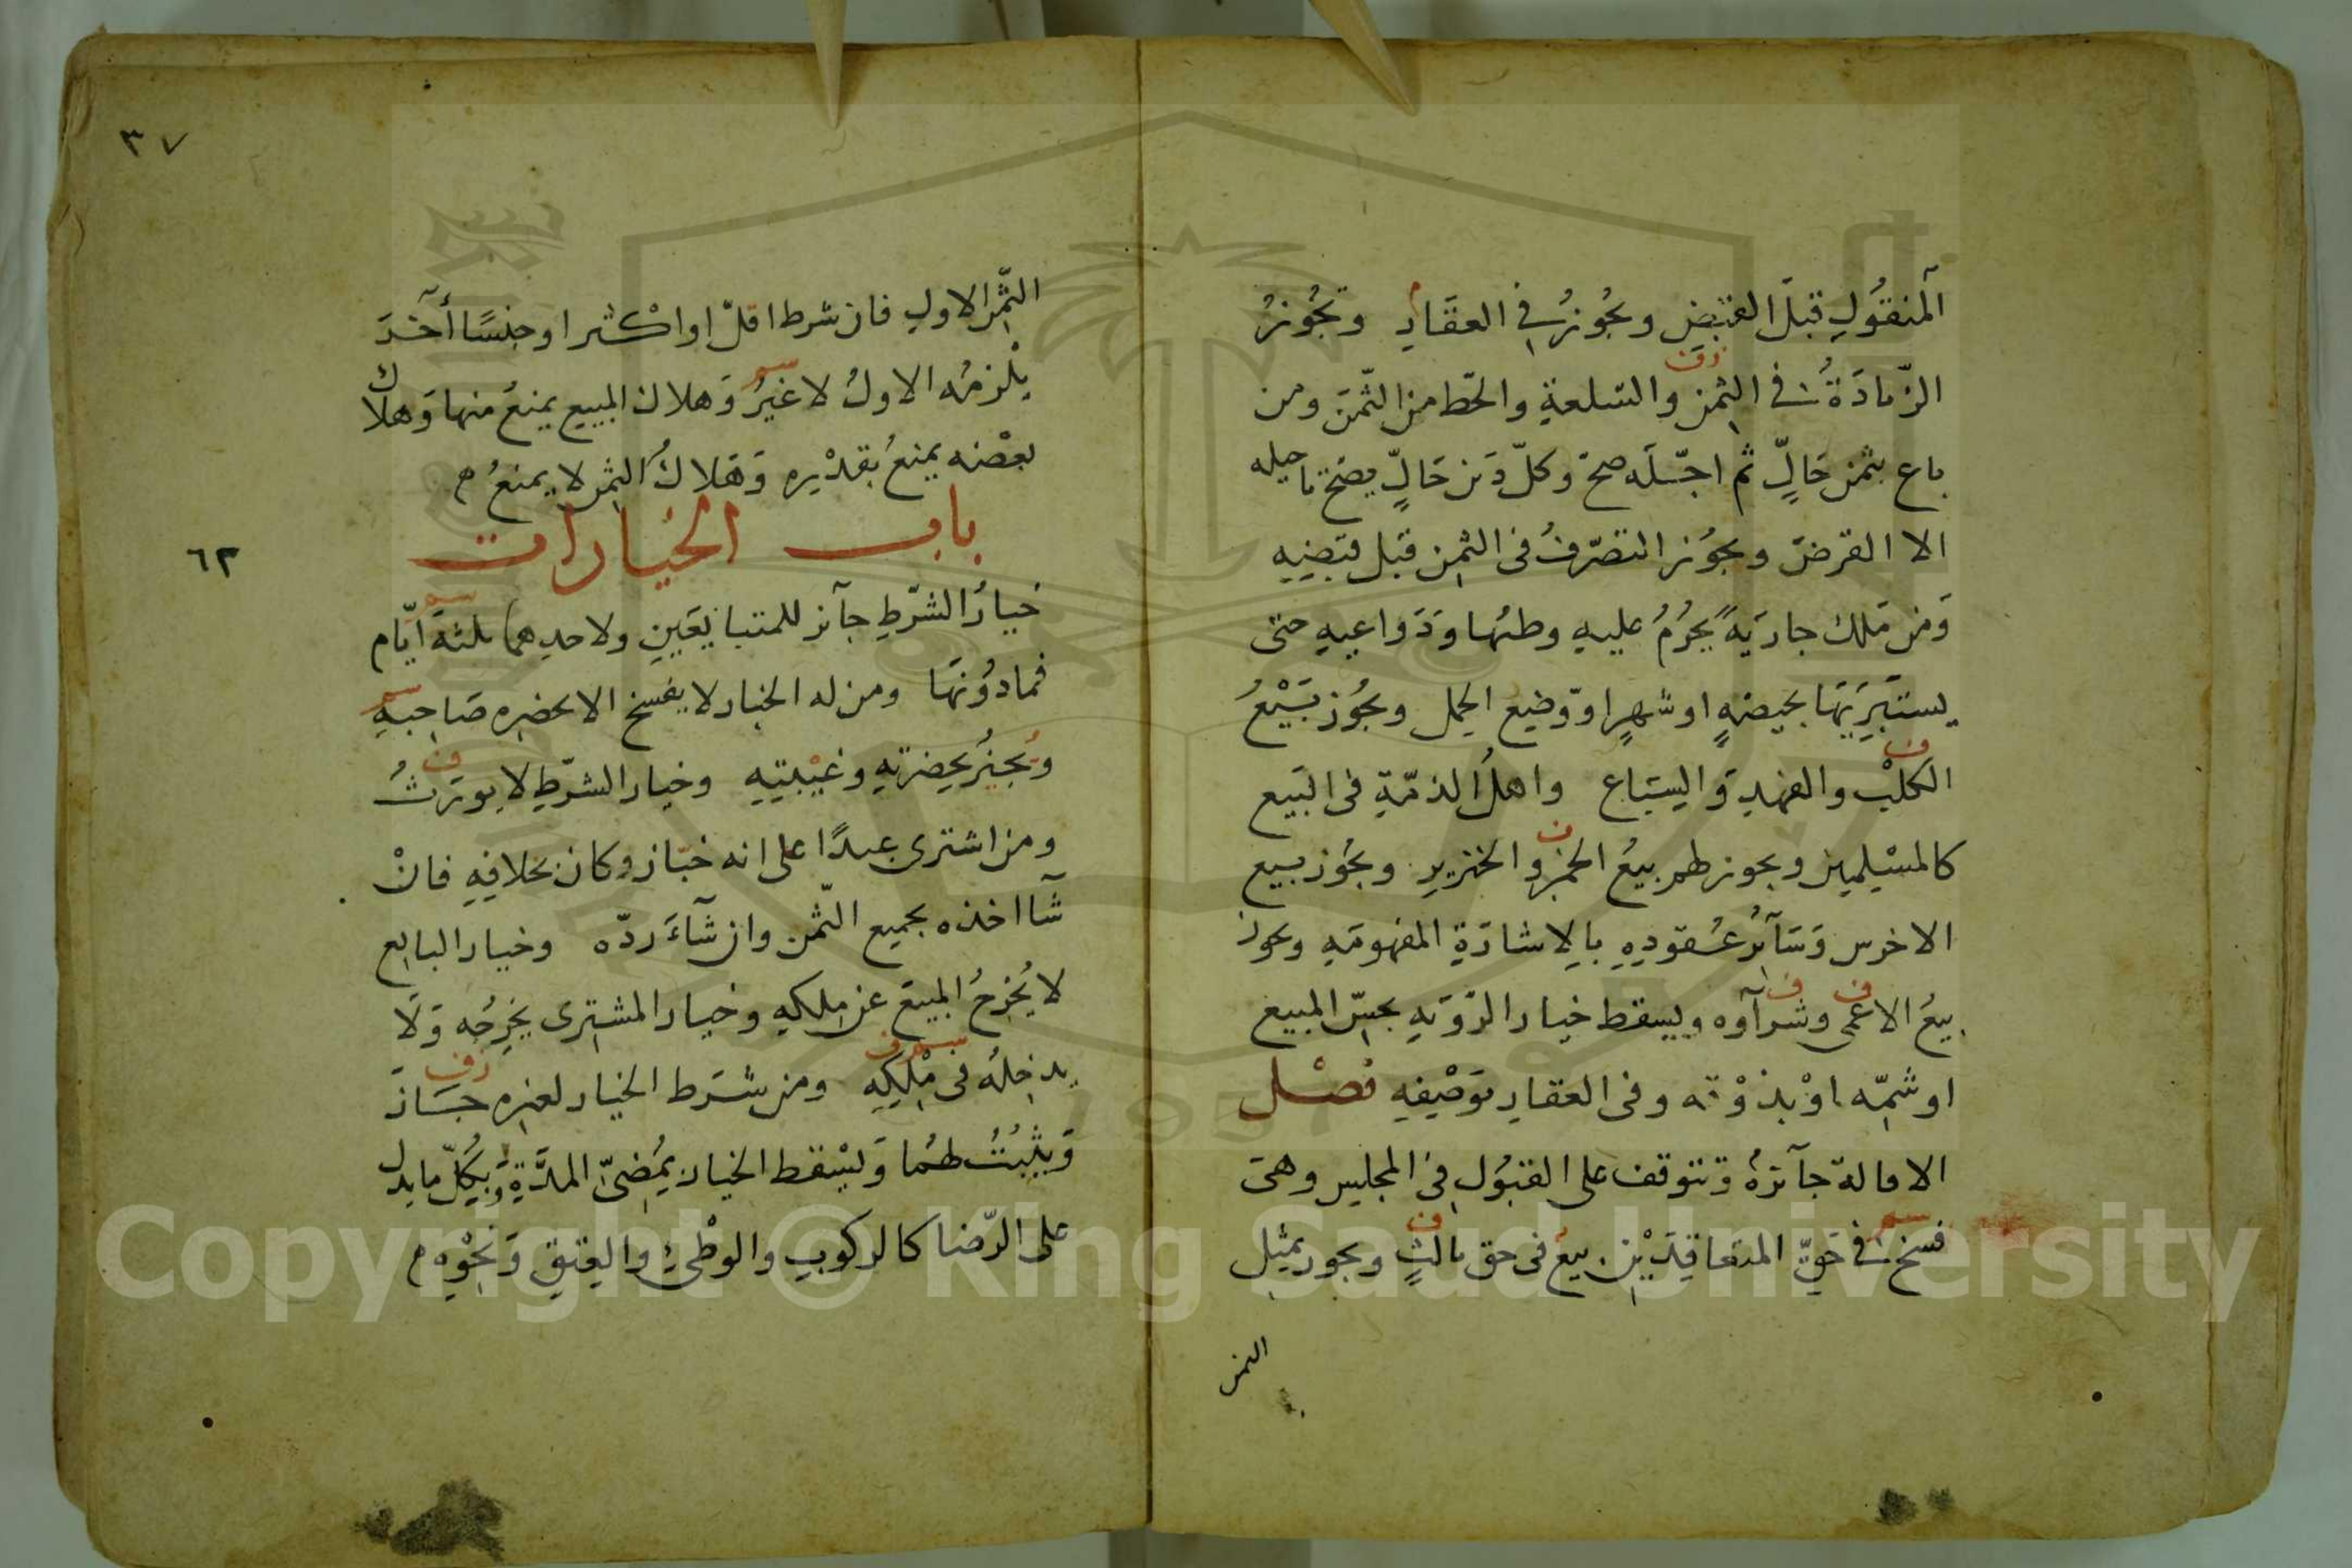 المنقُولِ قبلَ القبضِ ويجُوزُ في العقَارِ وتجُوزُ
الزّيادَةُ في الثمنِ والسّلعةِ والحَط من الثّمَن ومن
باع بثمن حَالٍّ ثم اجّلَه صحّ وكلّ دَين حَالٍّ يصَح تاجيله
الا القرضَ ويجوُز التصرّفُ فى الثمِن قبَل قبَضِهِ
وَمَن مَلك جاريَةً يَحرُمُ عليهِ وطئُها وَدَوَاعيهِ حتى
يستَبَريَها بحيضةٍ او شهرٍ او وَضِع الحمل ويجُوز بَيْعُ
الكَلْبِ والفهدِ وَالسِبَاع واهلُ الذمّةِ فى البَيع
كالمسْلِمِينَ ويجوز لهم بيعُ الخمِر والخنزيرِ ويجُوز بيع
الاخرس وَسَآئرُ عُقودِهِ بالاِشارَةِ المفهومَةِ ويجوز
بيعُ الاعمى وشرآوه ويسقط خيار الرّؤيَةِ بجسّ المبيع
او شمّه اوْ بذوْقه وفى العقارِ بوَصْفِهِ فصْل
الاقالة جآئزةٌ وَتتوقف على القبُولِ فِى المجلِس وهىَ
فسخٌ فى حَقِّ المتعَاقِدَيْنِ بيعٌ فى حق ثالثٍ ويجوز بمثِل
الثمن
٣٧
الثّمِن الاولِ فان شرط اقلّ او اكْثر او جنسًا آخَرَ
يلْزمُه الاولُ لا غيرُ وَهلاك المبيع يمنعُ منها وَهلاك
بعضه يمنعُ بقدْرِهِ وَهَلاكُ الثمِن لا يمنعُ م
باب الخيارات
٦٣
خيارُ الشّرطِ جآئز للمتبايعَينِ ولاحدِهما ثلثةَ ايّام
فما دُونَها ومن له الخيار لا يفسخ الا بحضرهِ صَاحِبهِ
وَيُجيزُ بحِضرتهِ وغيْبتِهِ وخيار الشّرطِ لا يورَثُ
ومن اشترى عبدًا على انه خبّاز وكان بخلافِهِ فانْ
شآ اخذه بجميع الثّمن وان شآءَ ردّه وخيار البايع
لا يُخرِجُ المبيَعَ عن مِلكهِ وخيار المشترى يُخرِجُه وَلَا
يدخِلُه فى مِلْكِهِ ومن شَرط الخيار لغيرهِ جَازَ
وَيثْبُتُ لهُما وَيسْقط الخيار بمُضِىّ المدَّةِ وَبِكُلّ ما يدل
على الرّضا كالركوبِ والوطْىِٔ والعِتقِ وَنحْوِهِ م
Copyright © King Saud University
1957